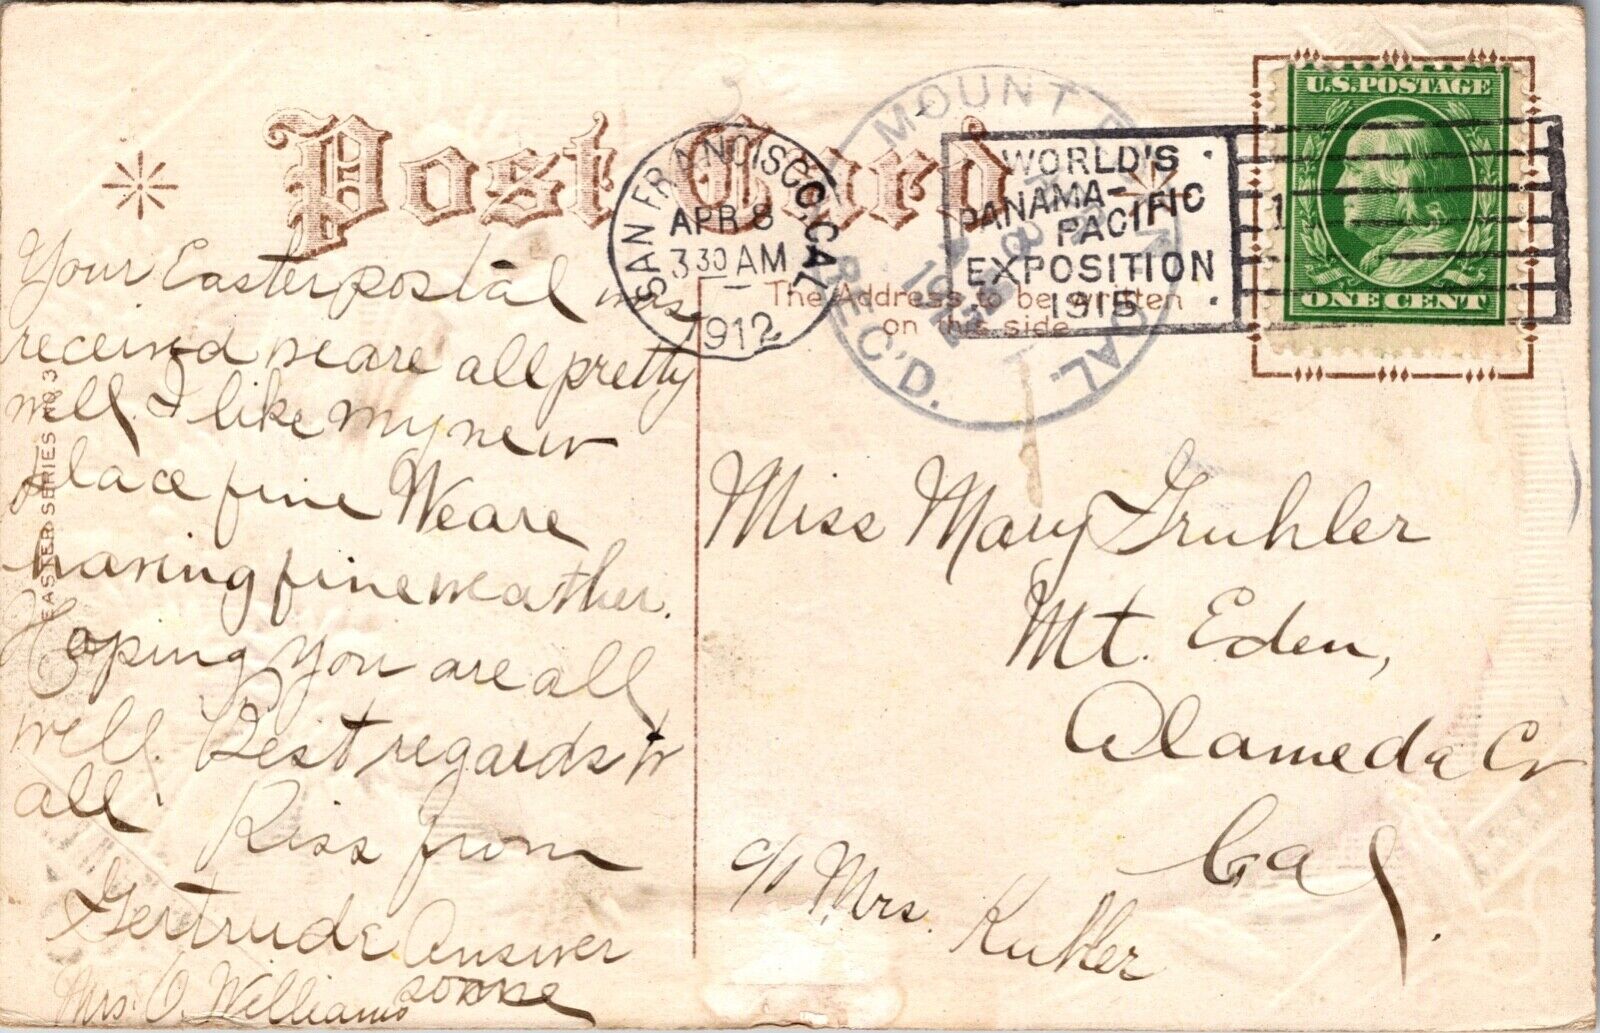 Post Card
SAN FRANCISCO, CAL.
APR 8
3 30 AM
1912
MOUNT EDEN, CAL.
APR
8
1912
REC'D.
WORLD'S
PANAMA-
PACIFIC
EXPOSITION
1915
1
U.S. POSTAGE
ONE CENT
The Address to be written
on this side
EASTER SERIES NO. 3
Your Easter postal was
received we are all pretty
well. I like my new
place fine We are
having fine weather.
Hoping you are all
well. Best regards to
all. Kiss from
Gertrude Answer
soone
Mrs. O. Williams
Miss Mary Gruhler
Mt. Eden,
Alameda Co
Cal.
c/o Mrs. Kuhler